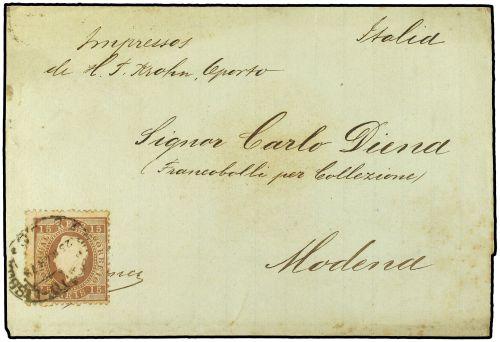 Impressos
de H. F. Krohn, Oporto
Italia
Signor Carlo Diena
(Francobolli per Collezione)
Modena
15 15
15 15